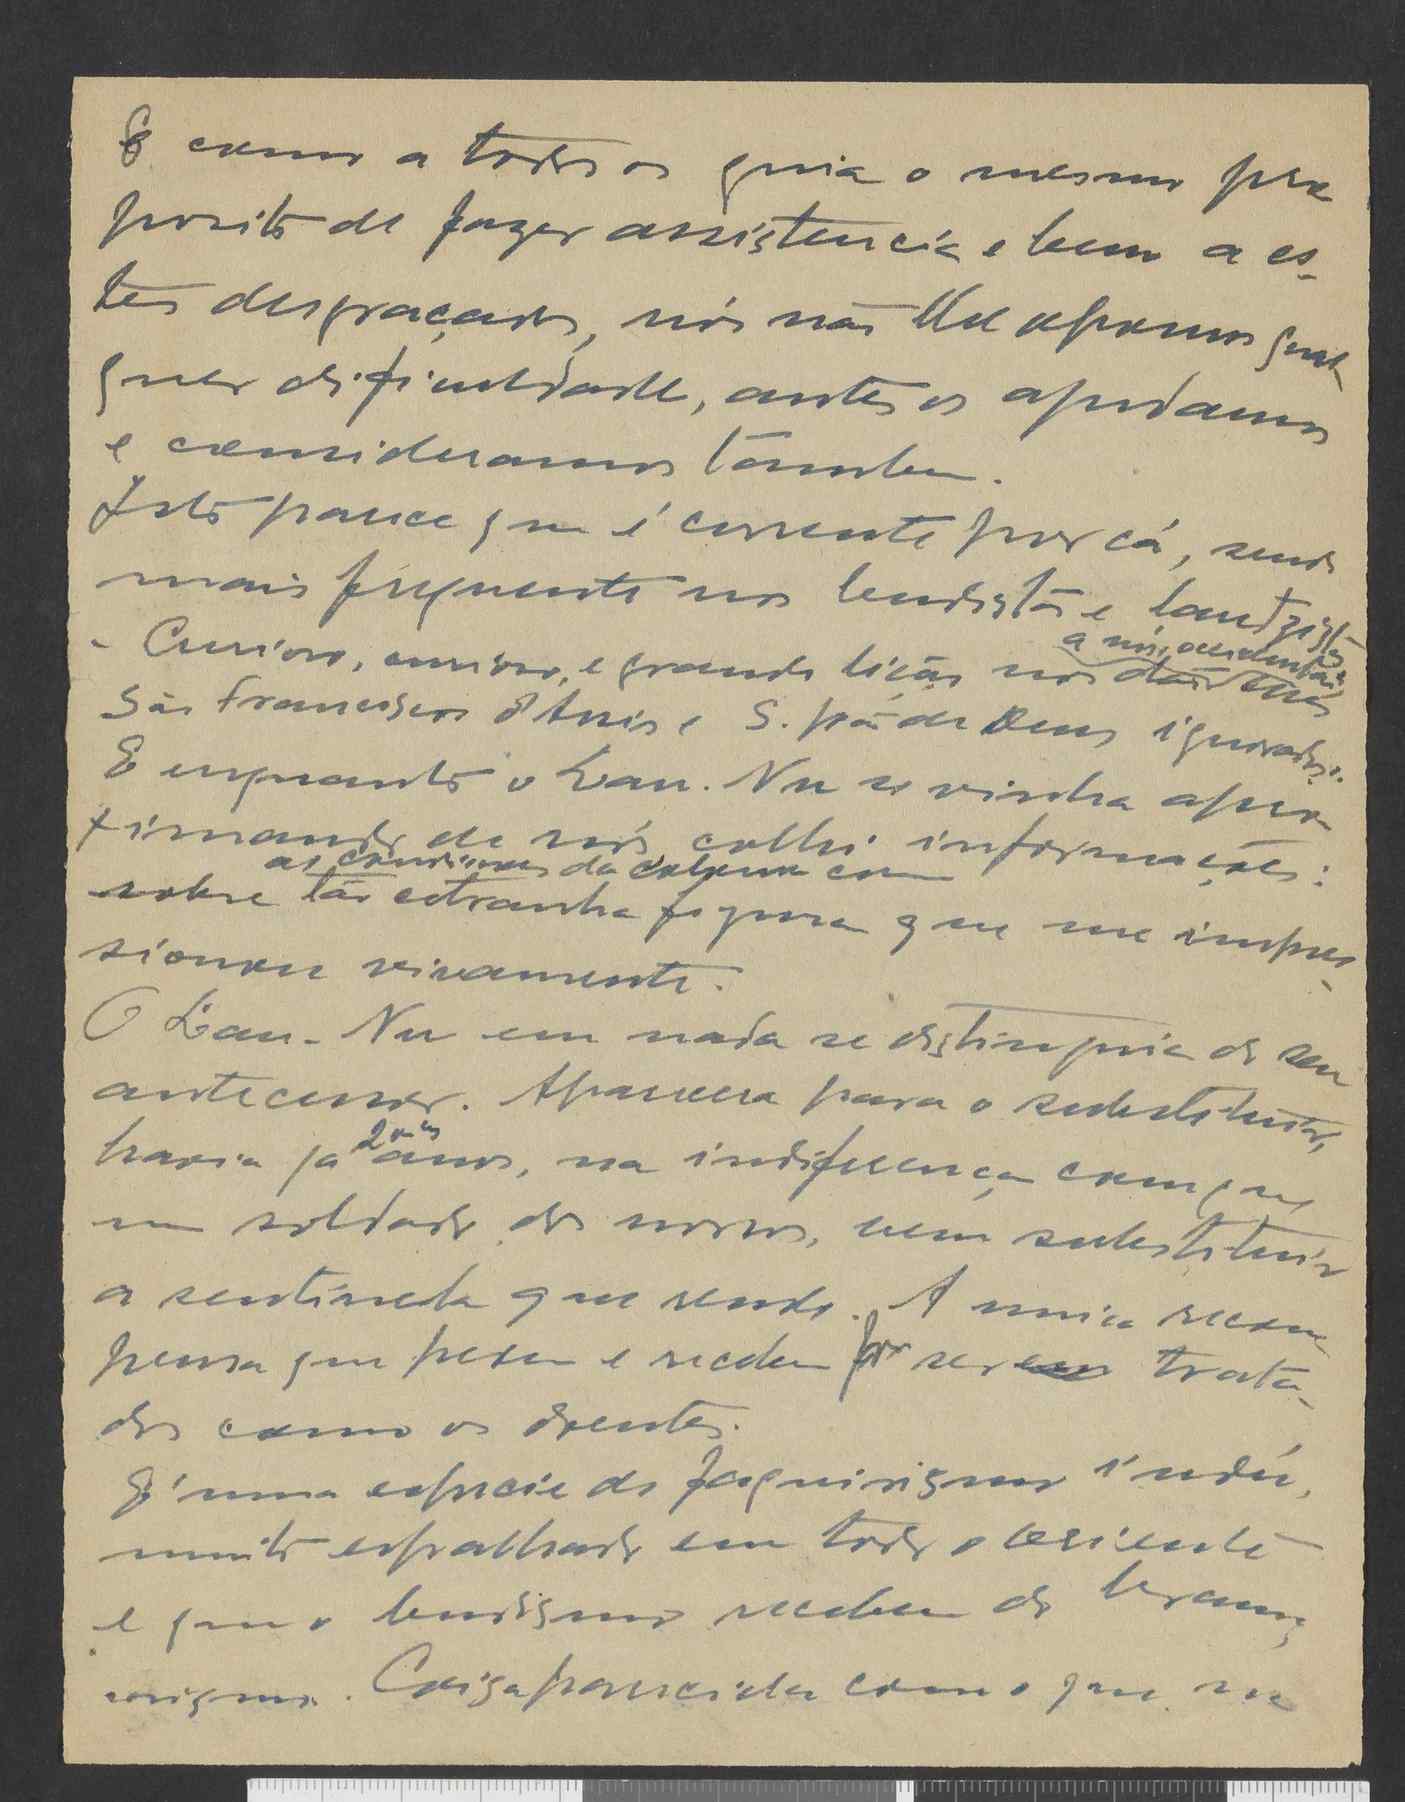 E como a todos os guia o mesmo pro
posito de fazer assistencia e bem a es-
tes desgraçados, nós não lhe opomos qual
quer dificuldade, antes os ajudamos
e consideramos tambem.
Isto parece que é corrente por cá, sendo
mais frequente nos budistas e
- Curioso, curioso, e grande lição nos dão
a nós, ocidentais
São Francisco d'Assis e S. João de Deus ignorados.
E enquanto o Lau-Nu se vinha apro
ximando de nós, colhi informações:
as conversas da colonia com
sobre tão estranha figura que me impres-
sionou vivamente.
O Lau-Nu em nada se distinguia do seu
antecessor. Aparecera para o substituir,
havia já 2 anos, na indiferença com que
um soldado dos nossos, vem substituir
a sentinela que rende. A unica recom
pensa que pedem e recebem por ser trata-
dos como os doentes.
E' uma especie de faquirismo indú,
muito espalhado em todo o oriente
e que o budismo recebeu do brama
nismo. Coisa parecida com o que se